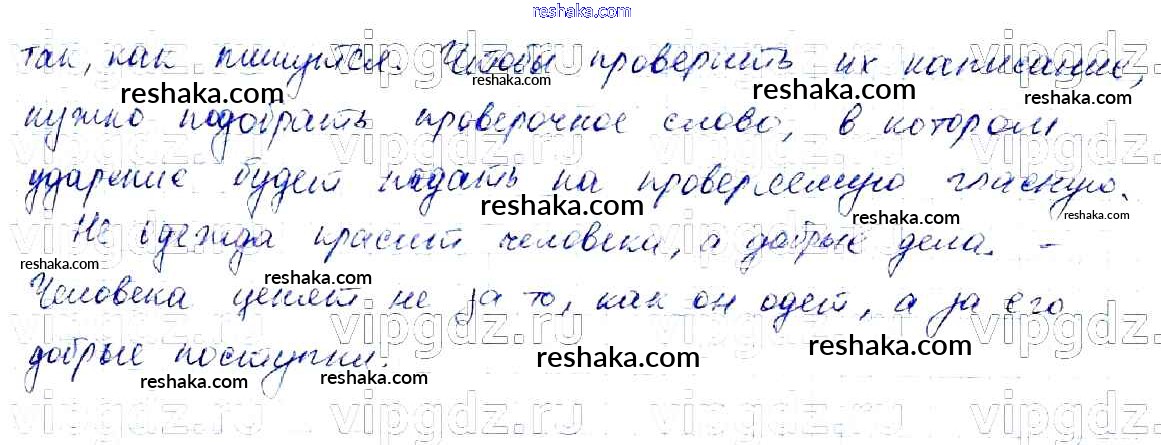 resh​aka.com
так, как пишутся. Чтобы проверить их написание,
reshaka.com reshaka.com reshaka.com
нужно подобрать проверочное слово, в котором
vipgdz.ru vipgdz.ru vipgdz.ru vipgdz.ru
ударение будет падать на проверяемую гласную.
reshaka.com reshaka.com
Не одежда красит человека, а добрые дела. -
reshaka.com reshaka.com
Человека ценят не за то, как он одет, а за его
vipgdz.ru vipgdz.ru vipgdz.ru vipgdz.ru
добрые поступки.
reshaka.com reshaka.com reshaka.com reshaka.com